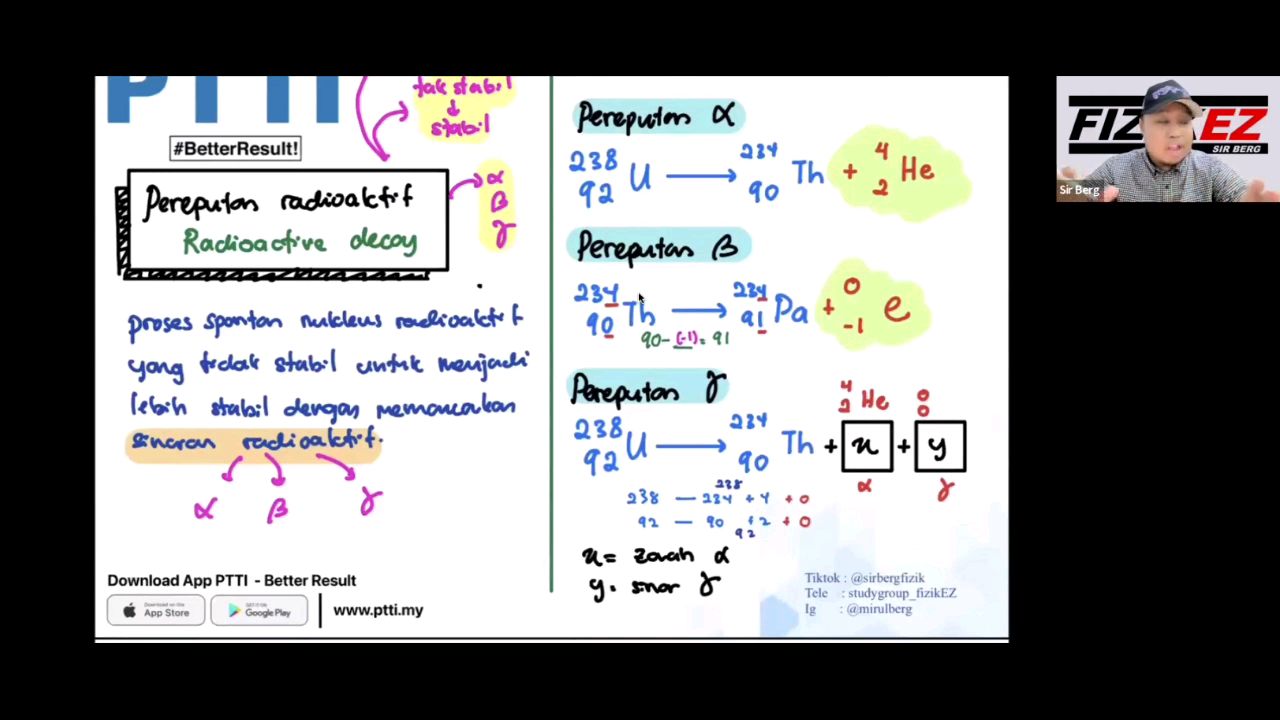 PTTI
#BetterResult!
tak stabil
↓
stabil
Pereputan radioaktif
Radioactive decay
α
β
γ
proses spontan nukleus radioaktif
yang tidak stabil untuk menjadi
lebih stabil dengan memancarkan
sinaran radioaktif.
α β γ
Download App PTTI - Better Result
Download on the App Store
GET IT ON Google Play
www.ptti.my
Pereputan α
²³⁸₉₂U → ²³⁴₉₀Th + ⁴₂He
Pereputan β
²³⁴₉₀Th → ²³⁴₉₁Pa + ⁰₋₁e
90-(-1)= 91
Pereputan γ
⁴₂He ⁰₀
²³⁸₉₂U → ²³⁴₉₀Th + x + y
α γ
238
238 — 234 + 4 + 0
92 — 90 + 2 + 0
92
x = zarah α
y = sinar γ
Tiktok : @sirbergfizik
Tele : studygroup_fizikEZ
Ig : @mirulberg
FIZIKEZ
SIR BERG
Sir Berg